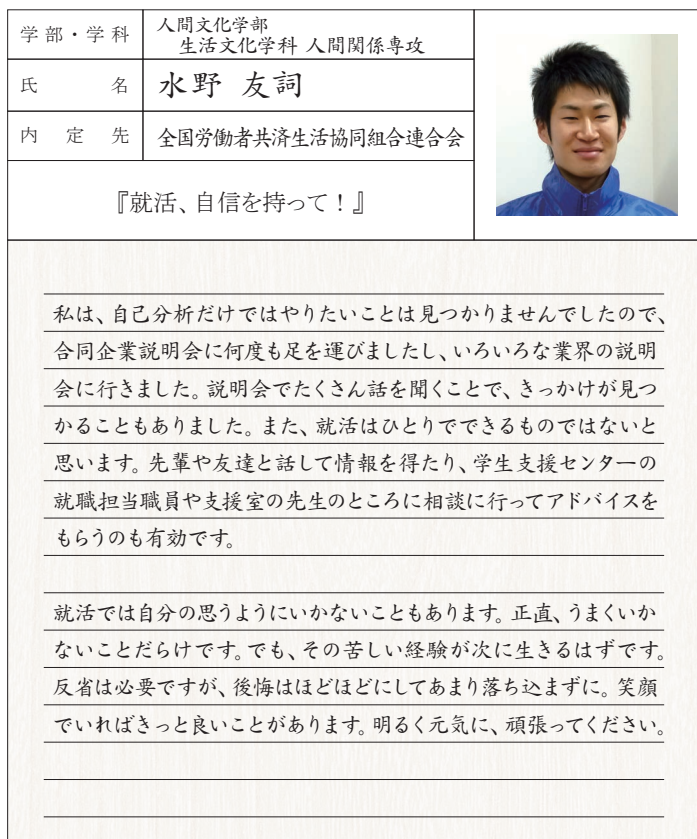 学部・学科
人間文化学部
生活文化学科 人間関係専攻
氏名
水野 友詞
内定先
全国労働者共済生活協同組合連合会
『就活、自信を持って！』
私は、自己分析だけではやりたいことは見つかりませんでしたので、
合同企業説明会に何度も足を運びましたし、いろいろな業界の説明
会に行きました。説明会でたくさん話を聞くことで、きっかけが見つ
かることもありました。また、就活はひとりでできるものではないと
思います。先輩や友達と話して情報を得たり、学生支援センターの
就職担当職員や支援室の先生のところに相談に行ってアドバイスを
もらうのも有効です。
就活では自分の思うようにいかないこともあります。正直、うまくいか
ないことだらけです。でも、その苦しい経験が次に生きるはずです。
反省は必要ですが、後悔はほどほどにしてあまり落ち込まずに。笑顔
でいればきっと良いことがあります。明るく元気に、頑張ってください。